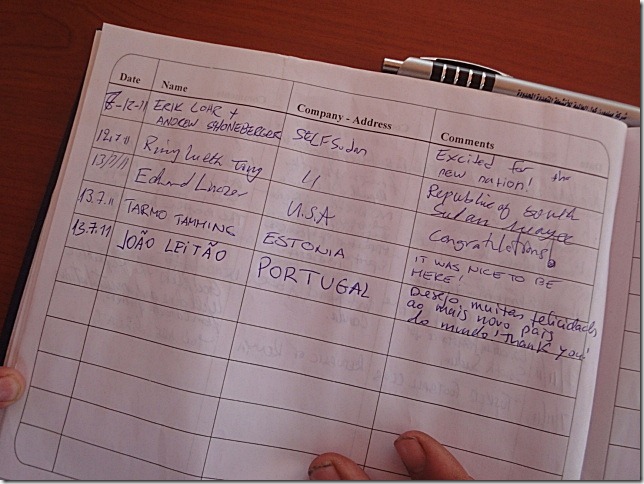 Date Name Company - Address Comments
7-12-11 ERIK LOHR + SELF Sudan Excited for the
ANDREW SHONEBERGER new nation!
12.7.11 Republic of South
Sudan
13/7/11 Edward U.S.A Congratulations!
13.7.11 TARMO TAMMING ESTONIA IT WAS NICE TO BE
HERE!
13.7.11 JOÃO LEITÃO PORTUGAL Desejo muitas felicidades
ao mais novo país
do mundo! Thank you!